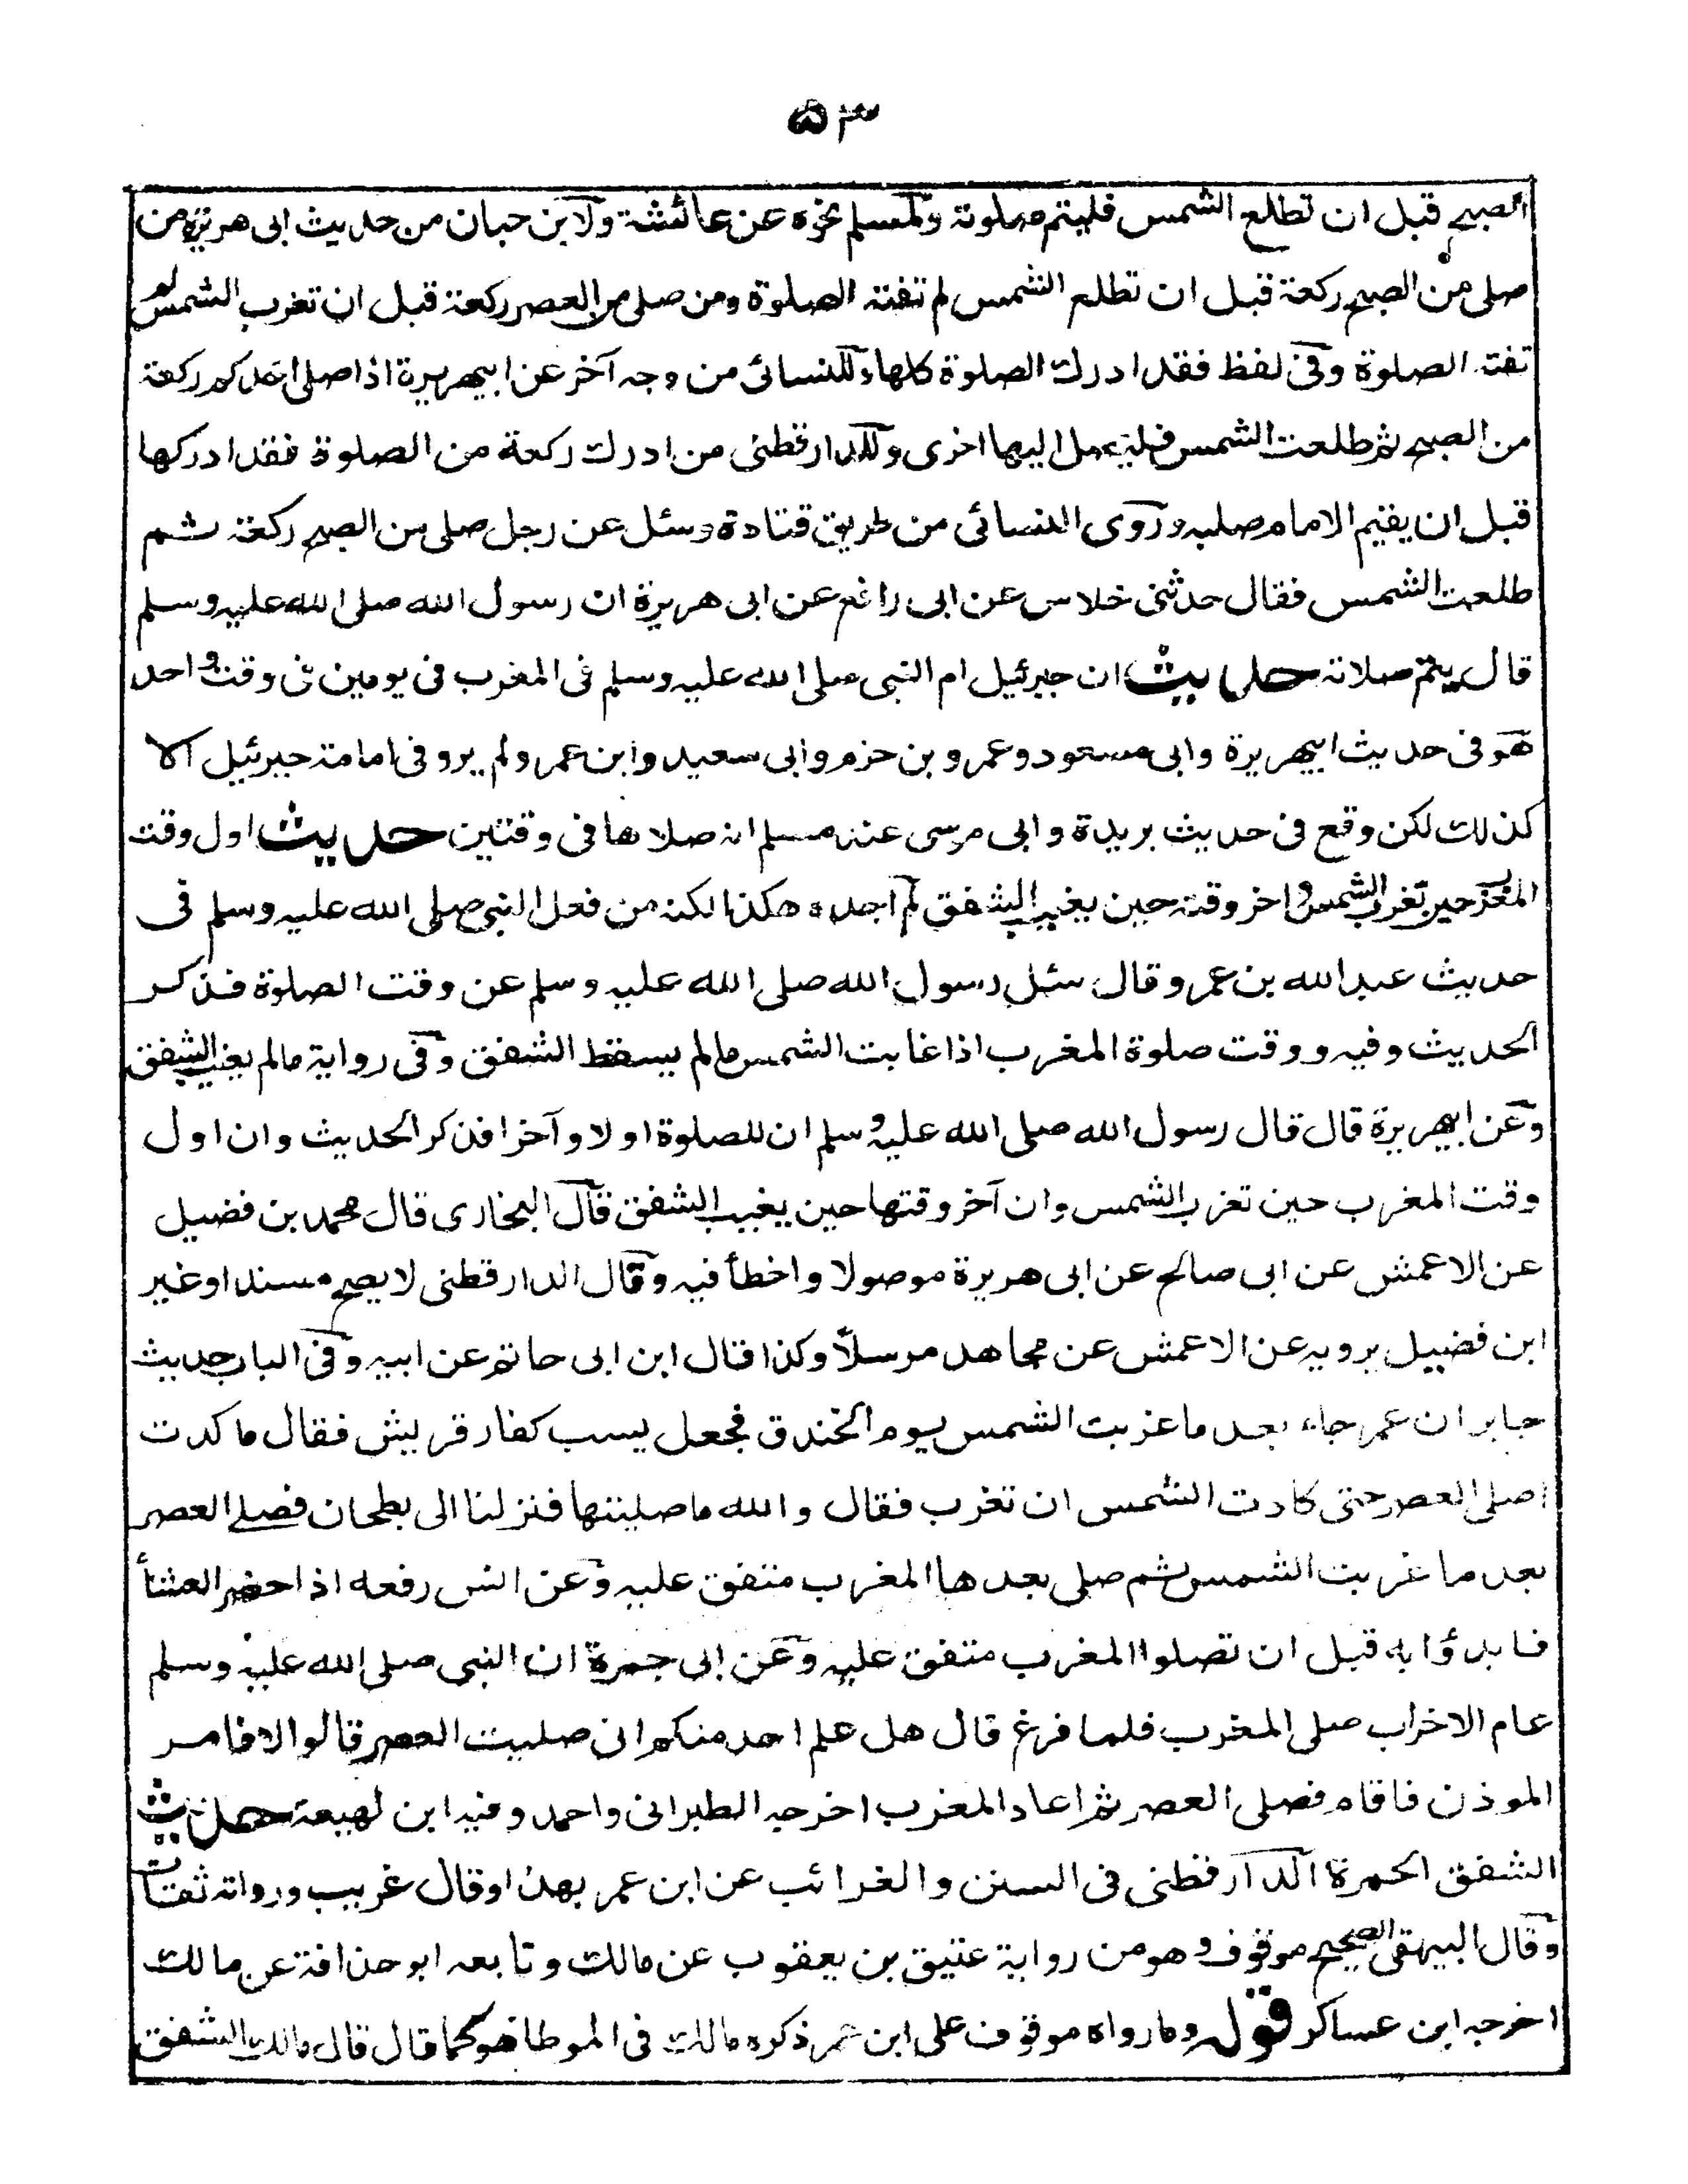 ۵۳
الصبح قبل ان تطلع الشمس فليتم صلوته ولمسلم نحوه عن عائشة ولابن حبان من حديث ابى هريرة من
صلى من الصبح ركعة قبل ان تطلع الشمس لم تفته الصلوة ومن صلى من العصر ركعة قبل ان تغرب الشمس لم
تفته الصلوة وفى لفظ فقد ادرك الصلوة كلها وللنسائى من وجه آخر عن ابيهريرة اذا صلى احدكم ركعة
من الصبح ثم طلعت الشمس فليصل اليها اخرى وللدارقطنى من ادرك ركعة من الصلوة فقد ادركها
قبل ان يقيم الامام صلبه وروى النسائى من طريق قتادة وسئل عن رجل صلى من الصبح ركعة ثم
طلعت الشمس فقال حدثنى خلاس عن ابى رافع عن ابى هريرة ان رسول الله صلى الله عليه وسلم
قال يتم صلاته حديث ان جبرئيل ام النبى صلى الله عليه وسلم فى المغرب فى يومين فى وقت واحد
هو فى حديث ابيهريرة وابى مسعود وعمرو بن حزم وابى سعيد وابن عمر ولم يرو فى امامة جبرئيل الا
كذلك لكن وقع فى حديث بريدة وابى موسى عند مسلم انه صلاها فى وقتين حديث اول وقت
المغرب حين تغرب الشمس واخر وقته حين يغيب الشفق لم اجده هكذا لكنه من فعل النبى صلى الله عليه وسلم فى
حديث عبدالله بن عمرو قال سئل رسول الله صلى الله عليه وسلم عن وقت الصلوة فذكر
الحديث وفيه ووقت صلوة المغرب اذا غابت الشمس مالم يسقط الشفق وفى رواية مالم يغيب الشفق
وعن ابيهريرة قال قال رسول الله صلى الله عليه وسلم ان للصلوة اولا وآخرا فذكر الحديث وان اول
وقت المغرب حين تغرب الشمس وان آخر وقتها حين يغيب الشفق قال البخارى قال محمد بن فضيل
عن الاعمش عن ابى صالح عن ابى هريرة موصولا واخطأ فيه وقال الدارقطنى لا يصح مسندا وغير
ابن فضيل يرويه عن الاعمش عن مجاهد مرسلاً وكذا قال ابن ابى حاتم عن ابيه وفى الباب حديث
جابر ان عمر جاء بعد ما غربت الشمس يوم الخندق فجعل يسب كفار قريش فقال ما كدت
اصلى العصر حتى كادت الشمس ان تغرب فقال والله ما صليتها فنزلنا الى بطحان فصلے العصر
بعد ما غربت الشمس ثم صلى بعدها المغرب متفق عليه وعن انس رفعه اذا احضر العشأ
فابدؤا به قبل ان تصلوا المغرب متفق عليه وعن ابى جمرة ان النبى صلى الله عليه وسلم
عام الاخراب صلى المغرب فلما فرغ قال هل علم احد منكم انى صليت العصر قالوا لا فامر
الموذن فاقام فصلى العصر ثم اعاد المغرب اخرجه الطبرانى واحمد وفيه ابن لهيعة حديث
الشفق الحمرة الدارقطنى فى السنن والغرائب عن ابن عمر بهذا وقال غريب ورواته ثقات
وقال البيهقى الصحيح موقوف وهو من رواية عتيق بن يعقوب عن مالك وتابعه ابو حذافة عن مالك
اخرجه ابن عساكر قوله وما رواه موقوف على ابن عمر ذكره مالك فى الموطا هو كما قال قال مالك الشفق